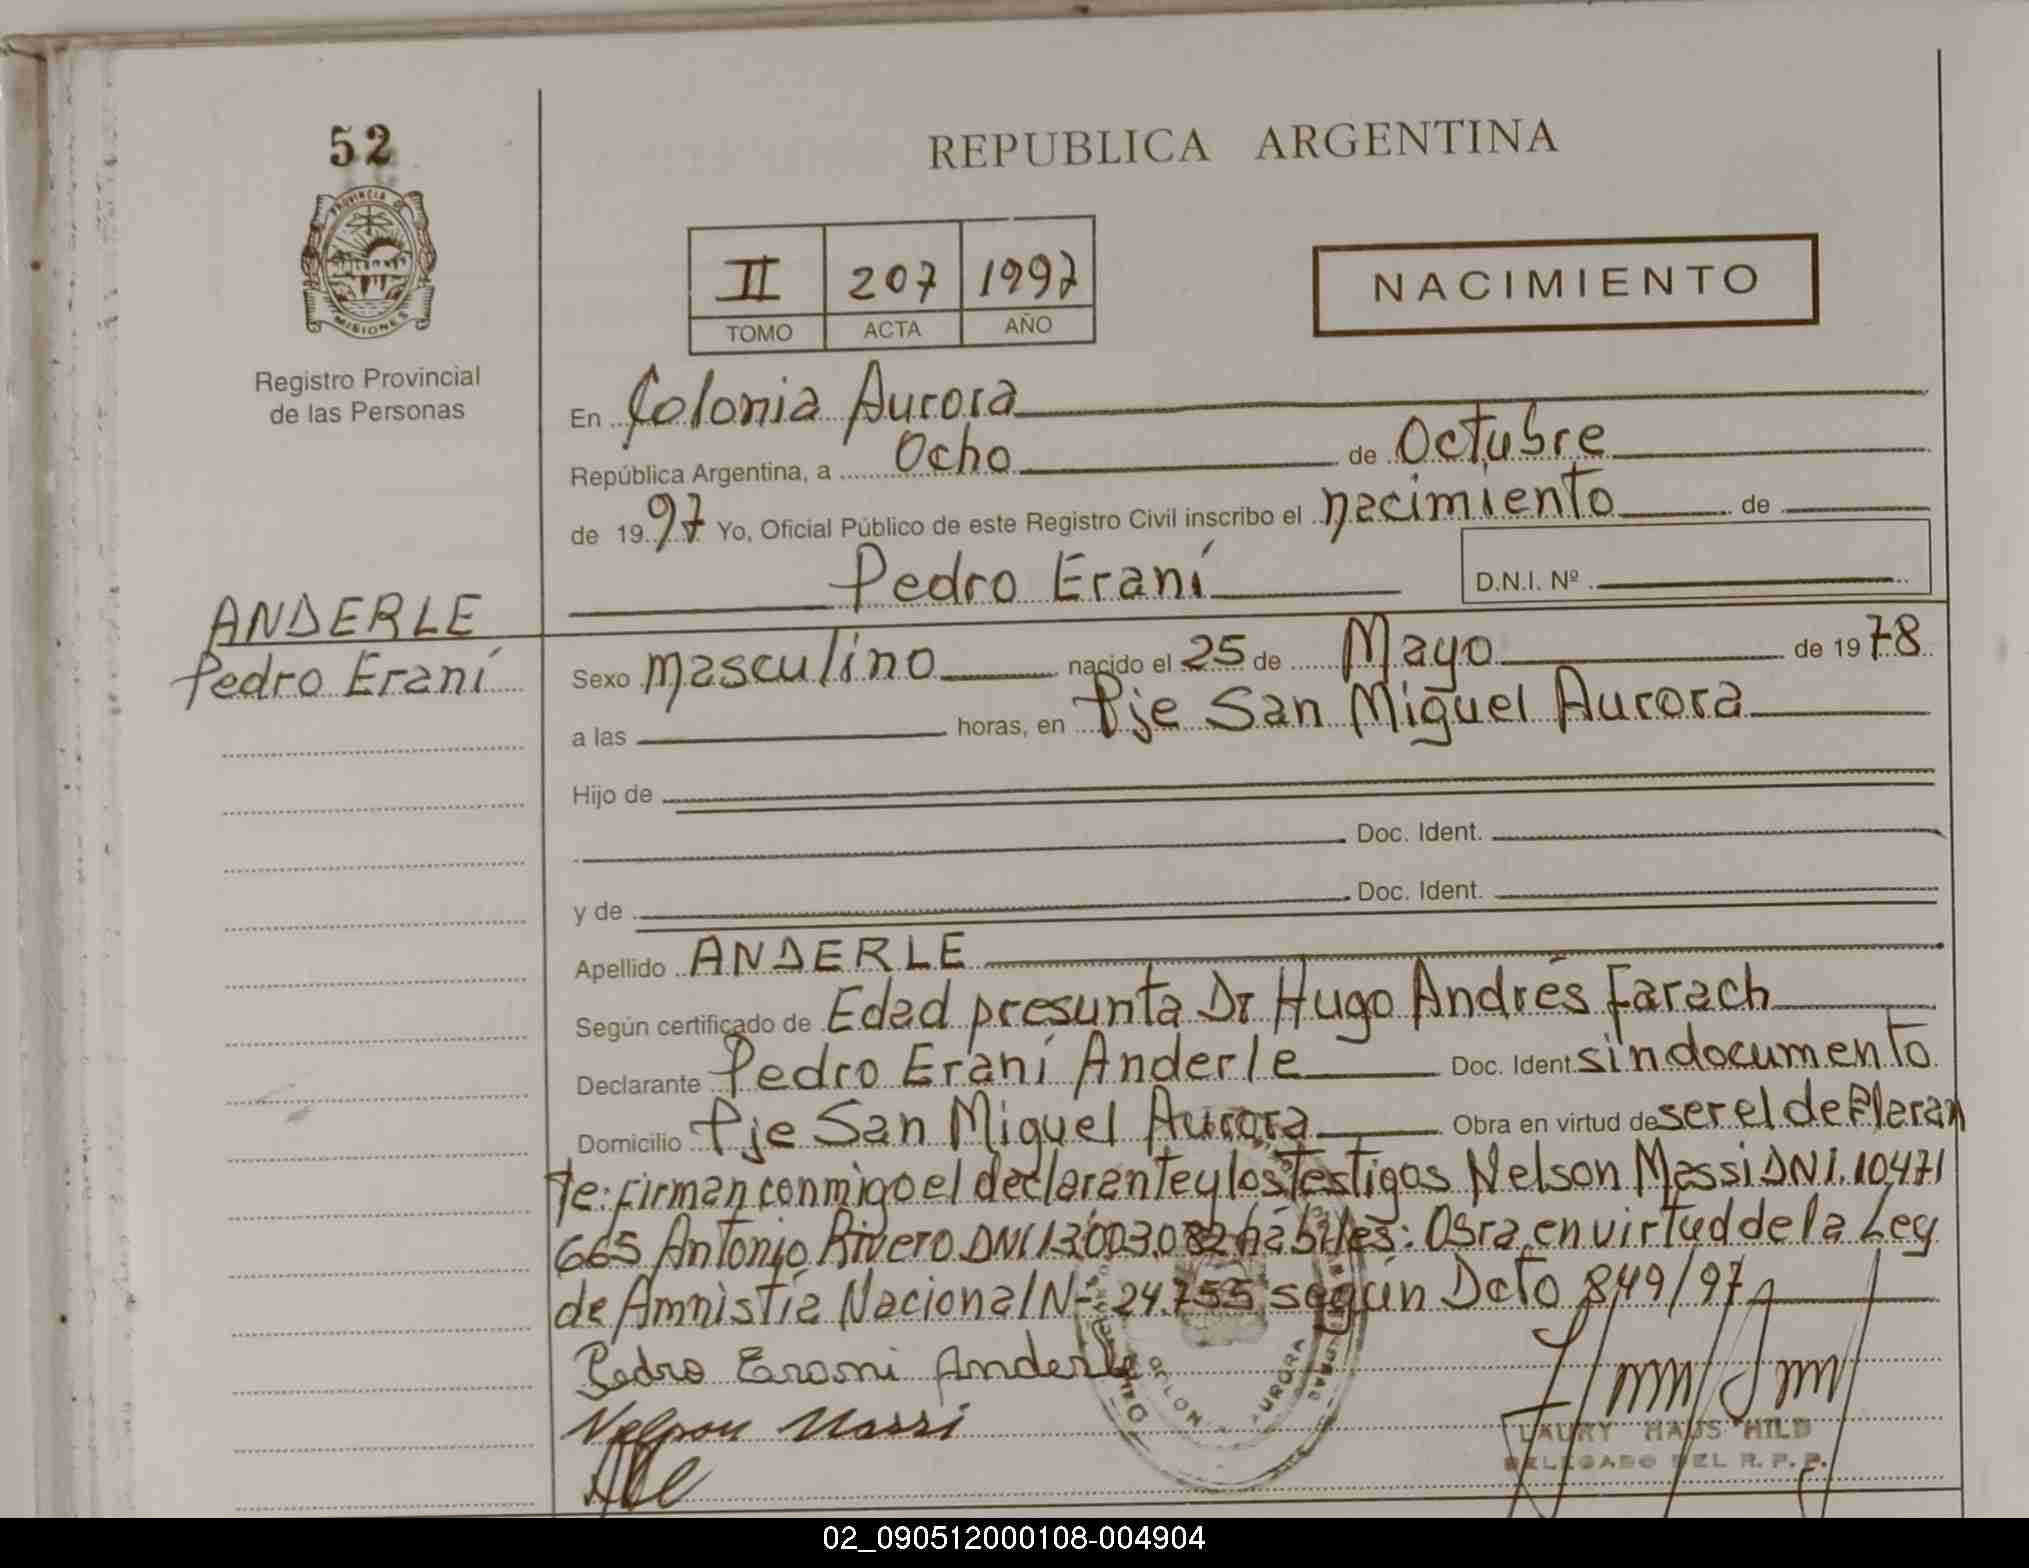 52
PROVINCIA DE
MISIONES
Registro Provincial
de las Personas
REPUBLICA ARGENTINA
II 207 1997
TOMO ACTA AÑO
NACIMIENTO
En Colonia Aurora
República Argentina, a Ocho de Octubre
de 1997 Yo, Oficial Público de este Registro Civil inscribo el nacimiento de
Pedro Eraní D.N.I. Nº
ANDERLE
Pedro Eraní
Sexo masculino nacido el 25 de Mayo de 1978
a las horas, en Pje San Miguel Aurora
Hijo de
Doc. Ident.
y de Doc. Ident.
Apellido ANDERLE
Según certificado de Edad presunta Dr Hugo Andrés Farach
Declarante Pedro Eraní Anderle Doc. Ident. sin documento
Domicilio Pje San Miguel Aurora Obra en virtud de ser el declaran
te: firman conmigo el declarante y los Testigos Nelson Massi DNI. 10471
665 Antonio Rivero DNI 13003.082 hábiles: Obra en virtud de la Ley
de Amnistía Nacional N- 24.755 según Dcto 849/97
Pedro Erani Anderle
Nelson Massi
LAURY HAUS HILD
DELEGADO DEL R. P. P.
02_090512000108-004904